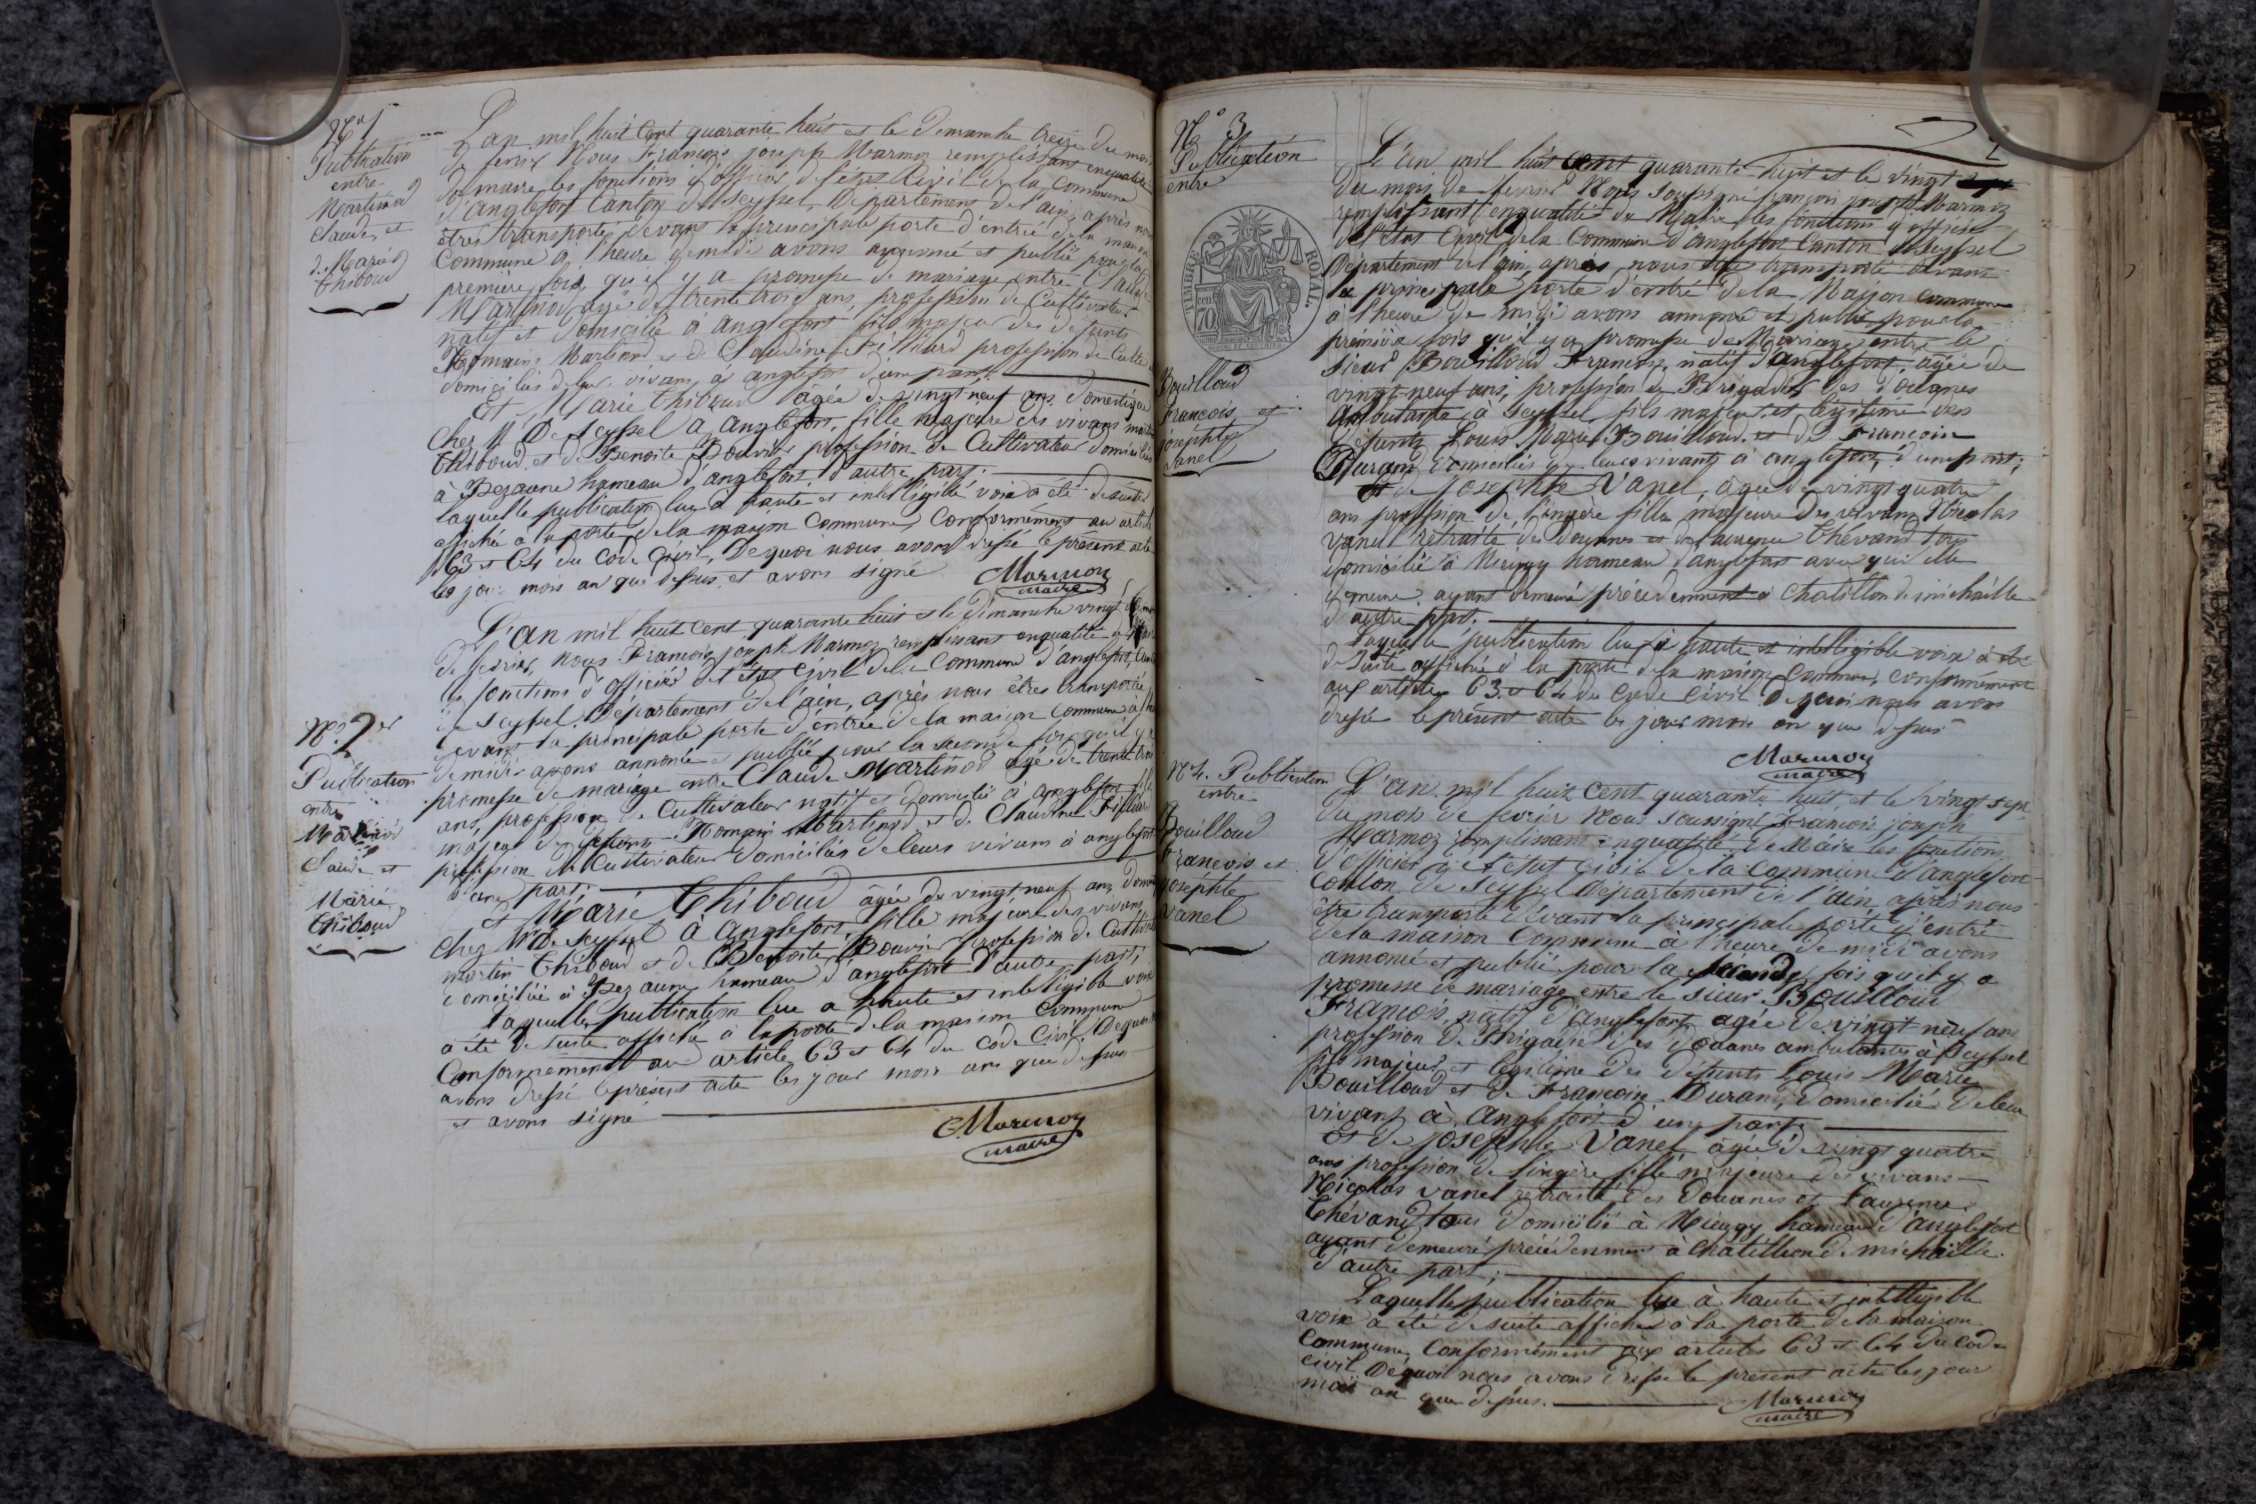 N° 1
Publication
entre
Martinod
Claude, et
de Marie
Thiboud
L'an mil huit Cent quarante huit et le Dimanche treize du mois
de fevrier Nous François joseph Marmoz remplissant enqualité
de maire les fonctions d'officier de l'état Civil de la Commune
d'anglefort Canton de Seyssel, Département de l'ain, après nous
êtres transportés devant la principale porte d'entrée de la maison
Commune à l'heure de midi avons annoncé et publié pour la
première fois, qu'il y a promesse de mariage entre Claude
Martinod agé de trente trois ans, profession de Cultivateur
natif et domicilié à anglefort fils majeur des defunts
Romain Martinod et de Claudine Filliard profession de Cultiv
domiciliés de leur vivant à anglefort d'une part.
Et Marie Thiboud agée de vingt neuf ans domestique
chez Mr De Seyssel à anglefort, fille majeure des vivans martin
Thiboud et de Benoite Bouvier profession de Cultivateur domiciliés
à Bezaune hameau d'anglefort, d'autre part.
laquelle publication lue à haute et intelligible voix a été desuite
affiché à la porte de la maison Commune Conformément au article
63 et 64 du Code Civil, De quoi nous avons dressé le présent acte
les jour mois an que dessus et avons signé
Marmoz
maire
N° 2
Publication
entre
Martinod
Claude et
Marie
Thiboud
L'an mil huit cent quarante huit et le Dimanche vingt
de fevrier, nous François joseph Marmoz remplissant enqualité de Maire
les fonctions d'officier de l'état civil de la Commune d'anglefort, Canton
de Seyssel, Département de l'ain, après nous êtres transportés
devant la principale porte d'entrée de la maison Commune à l'heure
de midi avons annoncé et publié pour la seconde fois qu'il y a
promesse de mariage entre Claude Martinod agé de trente trois
ans, profession de Cultivateur natif et domicilié à anglefort fils
majeur de defunts Romain Martinod et de Claudine Filliard
profession de Cultivateur domiciliés de leurs vivans à anglefort
d'une part;
et Marie Thiboud âgée de vingt neuf ans
chez Mr De Seyssel à anglefort, fille majeure des vivans
martin Thiboud et de Benoite Bouvier profession de Cultiv
domiciliée à Bezaune hameau d'anglefort d'autre part;
laquelle publication lue a haute et intelligible voix
a été de suite affiché à la porte de la maison Commune
Conformément au article 63 et 64 du Code Civil, De quoi
avons dressé le présent acte les jour mois ans que dessus
et avons signé
Marmoz
maire
N° 3
Publication
entre
TIMBRE ROYAL.
70
Bouilloud
François et
joséphte
Vanel
2
L'an mil huit cent quarante huit et le vingt
du mois de fevrier Nous Soussigné françois joseph Marmoz
remplissant enqualité de Maire les fonctions d'officier
de l'état Civil de la Commune d'anglefort Canton de Seyssel
Département de l'ain, après nous être transporté devant
la principale porte d'entré de la Maison Commune
a l'heure de midi avons annoncé et publié pour la
première fois qu'il y a promesse de Mariage entre le
Sieur Bouilloud François, natif d'anglefort, agée de
vingt neuf ans, profession de Brigadier des douanes
ambutante à Seyssel fils majeur et légitime des
defunts Louis Marie Bouilloud et de Françoise
Durand domiciliés de leurs vivants à anglefort, d'une part;
et de Josephte Vanel, agée de vingt quatre
ans profession de lingère fille majeure des vivans Nicolas
Vanel retraité des Douanes et de laurence Thévand tous
domicilié à Mieugy hameau d'anglefort avec qui elle
demeure ayant demeuré précédemment à Chatillon de michaille
d'autre part.
Laquelle publication lue à haute et intelligible voix a été
de suite affiché à la porte de la maison Commune, Conformément
aux articles 63 et 64 du Code Civil De quoi nous avons
dressé le présent acte les jour mois an que dessus
Marmoz
maire
N° 4. Publication
entre
Bouilloud
François et
joséphte
Vanel
L'an mil huit cent quarante huit, et le vingt sept
du mois de fevrier Nous Soussigné François joseph
Marmoz remplissant enqualité de Maire les fonctions
d'officier de l'état Civil de la Commune d'anglefort
Canton de Seyssel Département de l'ain, après nous
être transporté devant la principale porte d'entré
de la maison Commune à l'heure de midi avons
annoncé et publié pour la seconde fois qu'il y a
promesse de mariage entre le sieur Bouilloud
François, natif d'anglefort, agée de vingt neuf ans
profession de Brigadier des douanes ambutantes à Seyssel
fils majeur et légitime des defunts Louis Marie
Bouilloud et de Françoise Durand, domicilié de leur
vivant à anglefort d'une part
Et de josephte Vanel agée de vingt quatre
ans profession de lingère fille majeure des vivans
Nicolas Vanel retraité des Douanes et Laurence
Thévand tous domicilié à Mieugy hameau d'anglefort
ayant demeuré précédemment à Chatillon de michaille.
d'autre part;
Laquelle publication lue à haute et intelligible
voix a été de suite affichée à la porte de la maison
Commune, Conformément aux articles 63 et 64 du Code
civil De quoi nous avons dressé le présent acte les jour
mois an que dessus.
Marmoz
maire